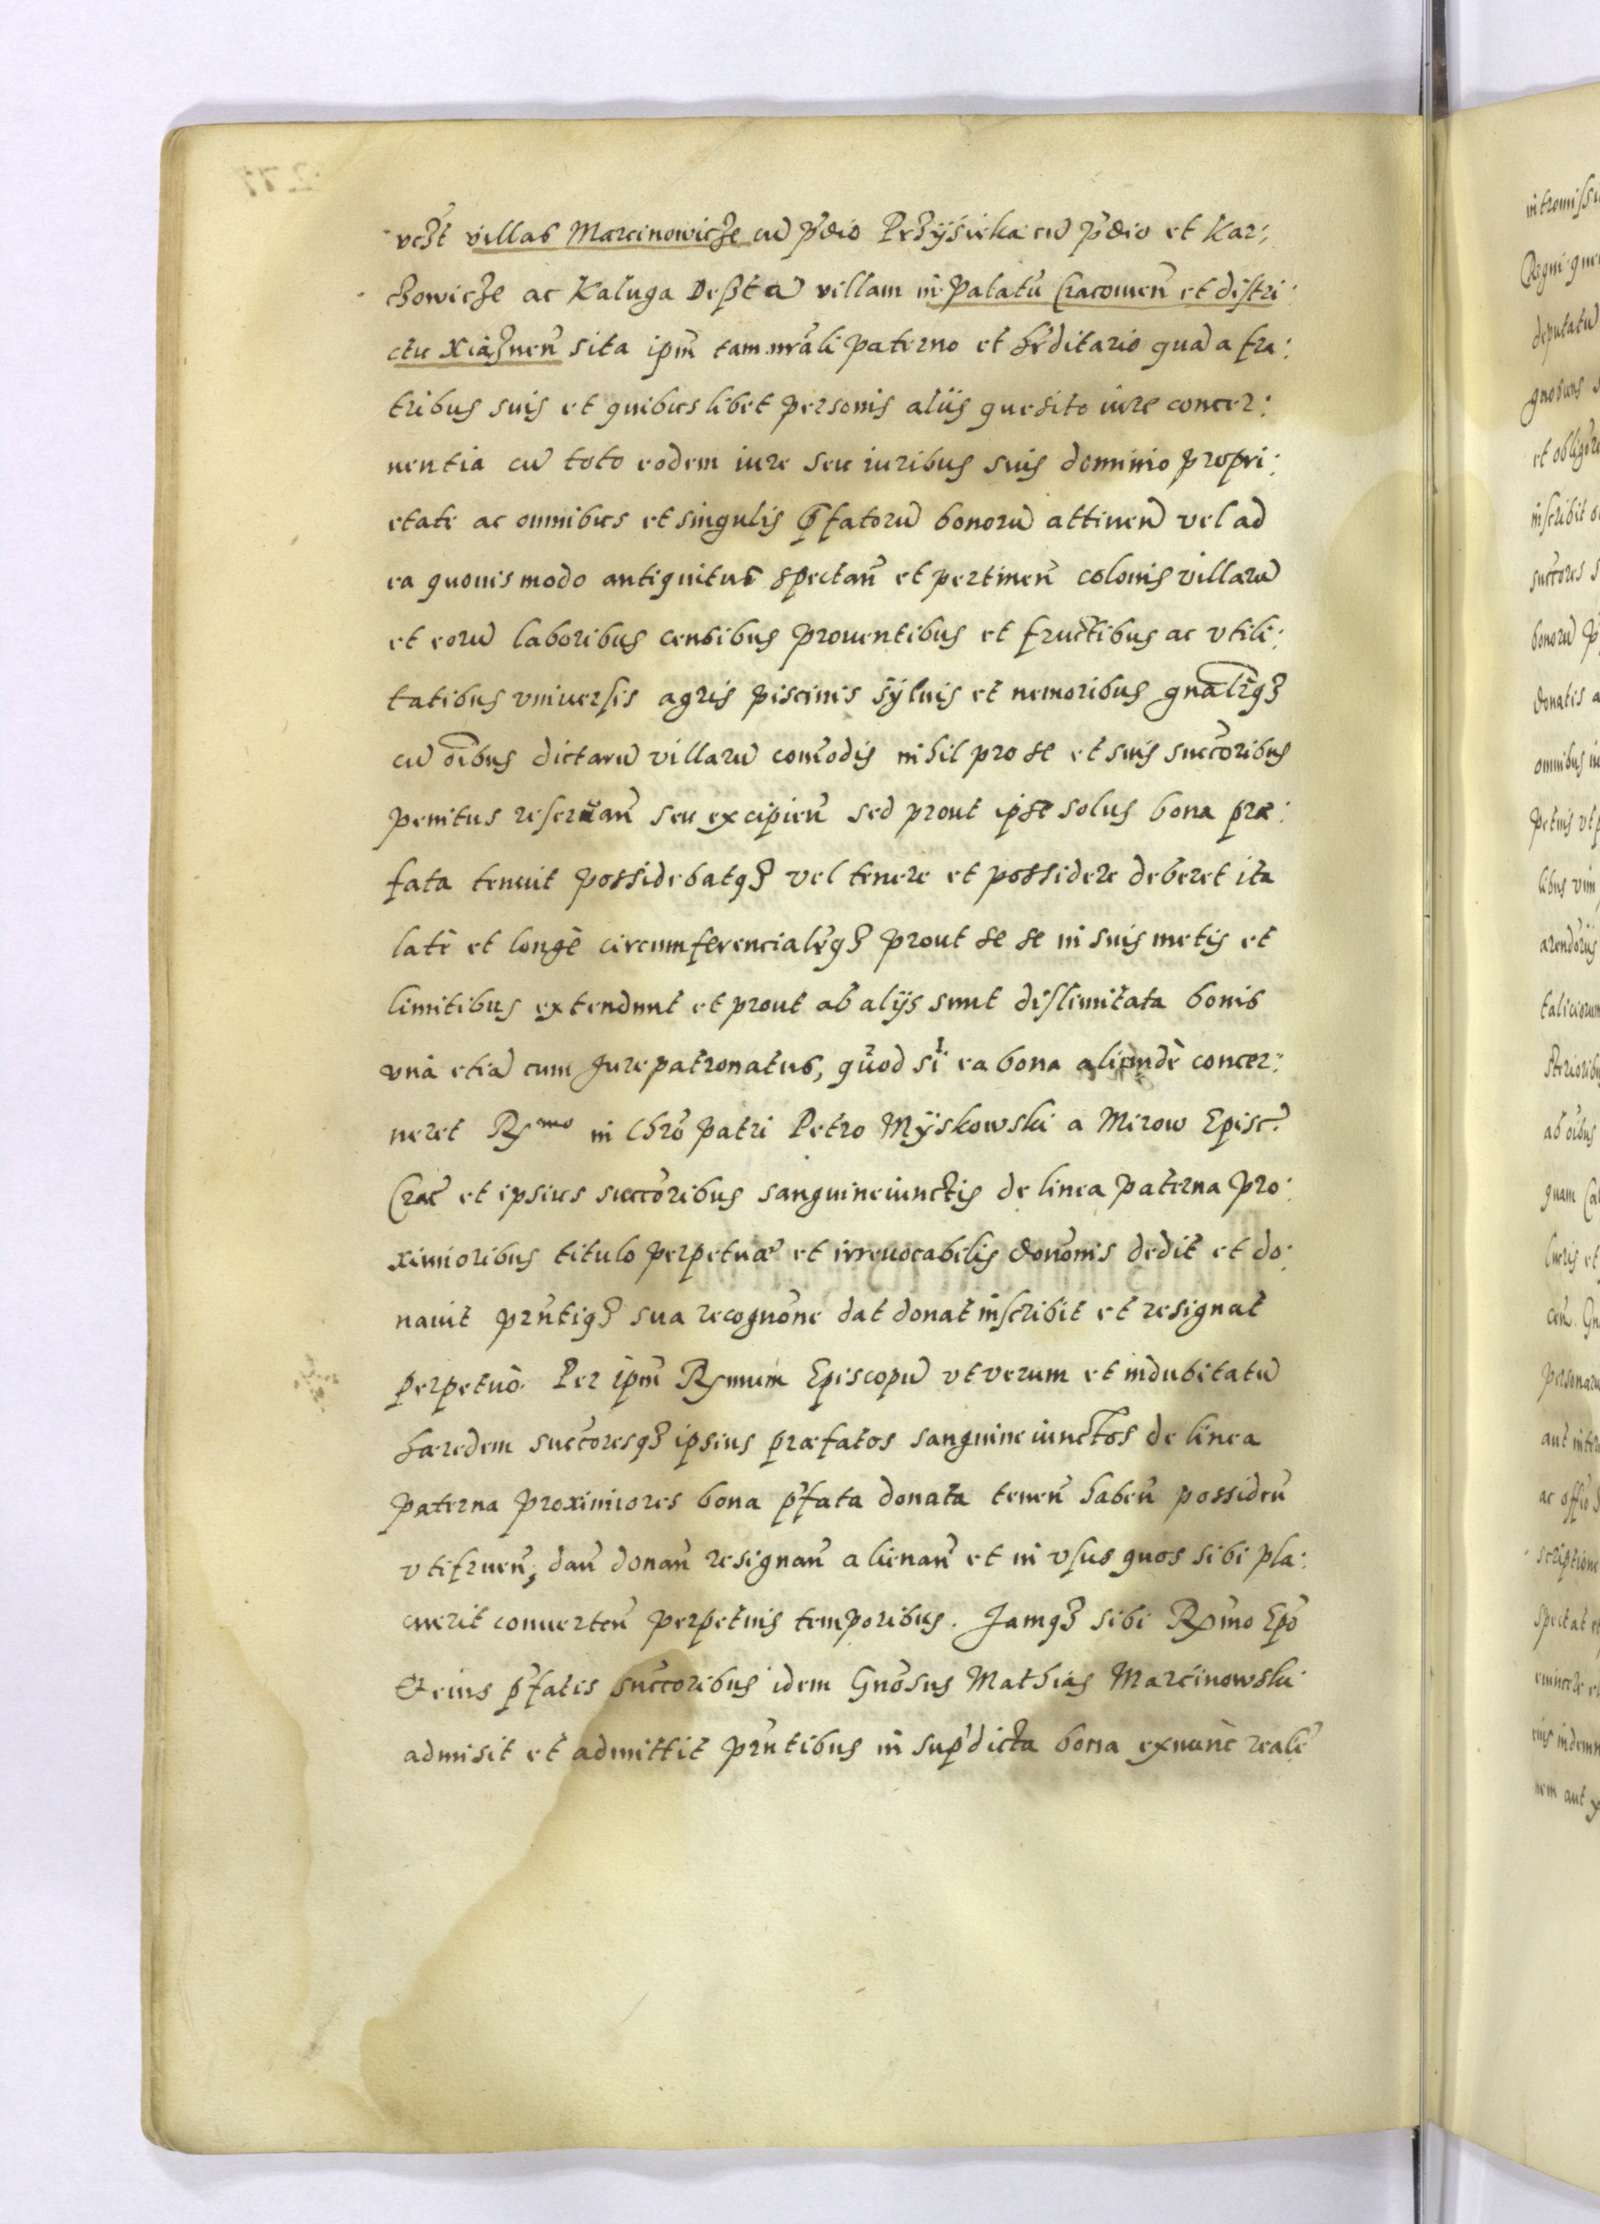 vczt villas Marcinowicze cū p̄dio Przÿsieka cū p̄dio et Kar:
czowicze ac Kaluga Desztā villam in Palatū Cracouieñ et distri:
ctu Xiązneñ sita ipm̄ tam nrāli paterno et hr̄ditario quā a fra:
tribus suis et quibuslibet personis aliis quesito iure concer:
nentia cū toto eodem iure seu iuribus suis dominio propri:
etate ac omnibus et singulis p̄fatorū bonorū attineñ vel ad
ea quouis modo antiquitus spectañ et pertineñ colonis villarū
et eorū laboribus censibus prouentibus et fructibus ac vtili:
tatibus vniuersis agris piscinis sÿluis et nemoribus gnālr̄qz
cū oībus dictarū villarū com̄odis nihil pro se et suis succ̄oribus
penitus reseruañ seu excipieñ sed prout ipse solus bona præ:
fata tenuit possidebatqz vel tenere et possidere deberet ita
latè et longè circumferencialr̄qz prout se se in suis metis et
limitibus extendunt et prout ab alÿs sunt dislimitata bonis
vnà etiā cum Jure patronatus, quod si ea bona aliundè concer:
neret Rx̄mo in Chrō patri Petro Mÿskowski a Mirow Episc̄
Crac̄ et ipsius succ̄oribus sanguineiunctis de linea paterna pro:
ximioribus titulo perpetuæ et irreuocabilis donōnis dedit et do:
nauit prn̄tiqz sua recognōne dat donat inscribit et resignat
perpetuò. Per ipm̄ Rx̄mum Episcopū vt verum et indubitatū
hæredem succ̄oresqz ipsius præfatos sanguineiunctos de linea
paterna proximiores bona p̄fata donata teneñ habeñ possideñ
vtifrueñ, dañ donañ resignañ alienañ et in vsus quos sibi pla:
cuerit conuerteñ perpetuis temporibus. Jamqz sibi Rx̄mo Epō
& eius p̄fatis succ̄oribus idem Gnōsus Mathias Marcinowski
admisit et admittit prn̄tibus in sup̄dicta bona exnunc realē